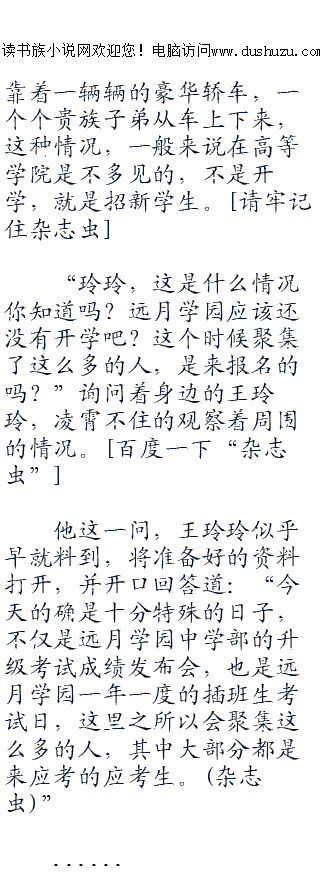 读书族小说网欢迎您！电脑访问www.dushuzu.com
靠着一辆辆的豪华轿车，一
个个贵族子弟从车上下来，
这种情况，一般来说在高等
学院是不多见的，不是开
学，就是招新学生。[请牢记
住杂志虫]
“玲玲，这是什么情况
你知道吗？远月学园应该还
没有开学吧？这个时候聚集
了这么多的人，是来报名的
吗？”询问着身边的王玲
玲，凌霄不住的观察着周围
的情况。[百度一下“杂志
虫”]
他这一问，王玲玲似乎
早就料到，将准备好的资料
打开，并开口回答道：“今
天的确是十分特殊的日子，
不仅是远月学园中学部的升
级考试成绩发布会，也是远
月学园一年一度的插班生考
试日，这里之所以会聚集这
么多的人，其中大部分都是
来应考的应考生。(杂志
虫)”
······